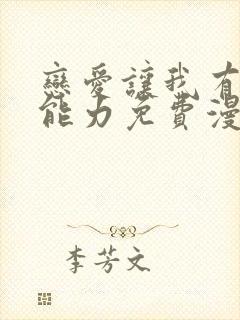 戀愛讓我有
能力免費漫
李芳文